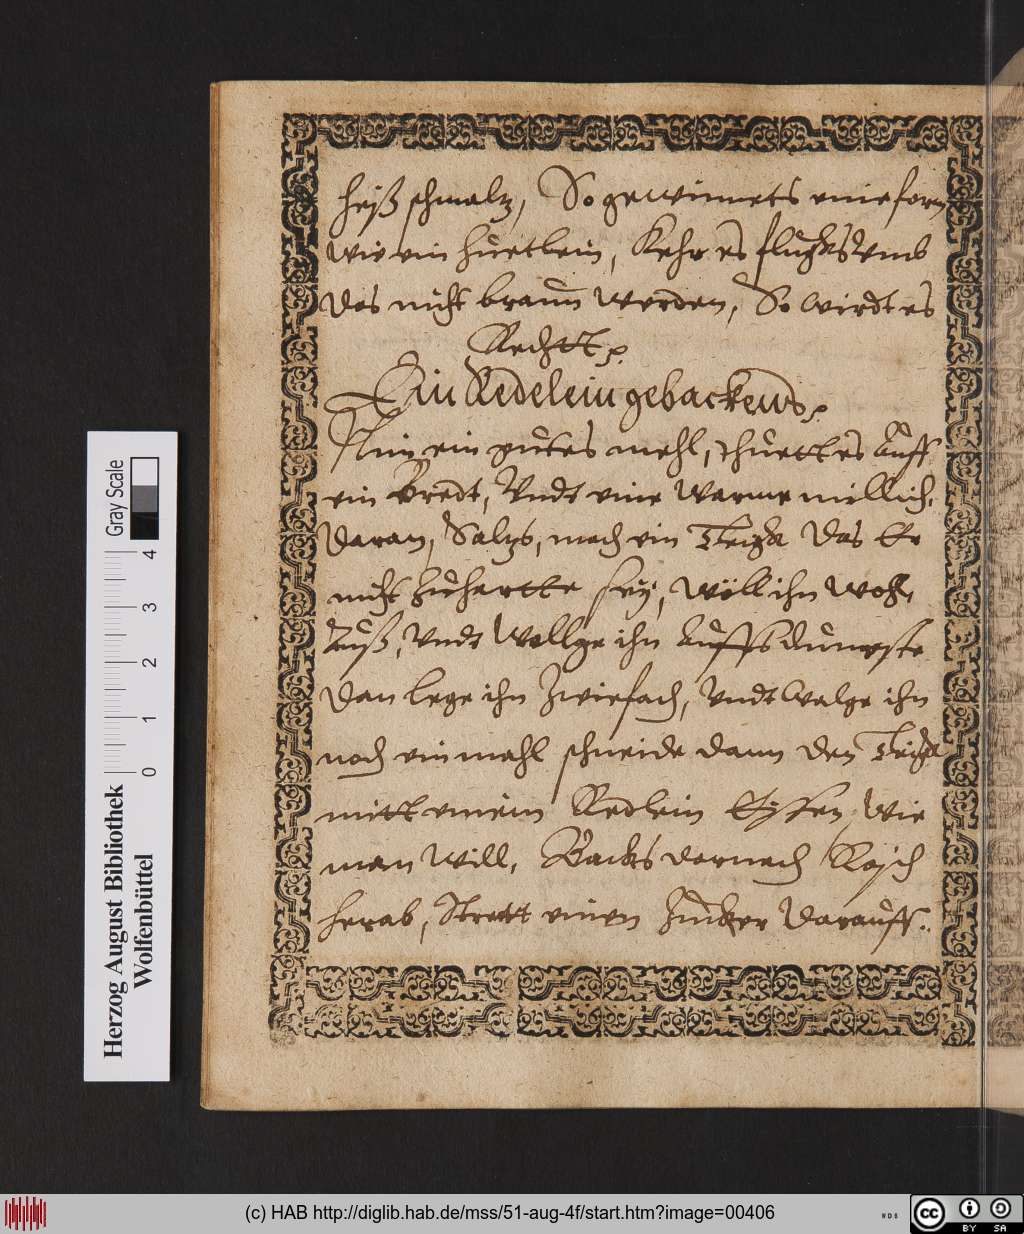 heiß schmaltz, So gewinnets eine form
wie ein huetlein, Kehr es flugks Vmb
das nicht braun werden, So wirdt es
Rechtt.
Ein Redelein gebackens.
Nim ein gutes mehl, schuett es auff
ein Bredt, Vndt eine warme millich
daran, Saltzs, mach ein Teigk das Er
nicht zuhertte sey, wöll ihn woll
Auß, Vndt Wellge ihn auffs dunneste
dan lege ihn Zwiefach, Vndt walge ihn
noch einmahl schneide dann den Teigk
mitt einem Redlein Eysen, wie
man will, Backs darnach Rösch
herab, Strett einen Zucker darauff.
Herzog August Bibliothek
Wolfenbüttel
Gray Scale
0 1 2 3 4
(c) HAB http://diglib.hab.de/mss/51-aug-4f/start.htm?image=00406
WDB
cc BY SA